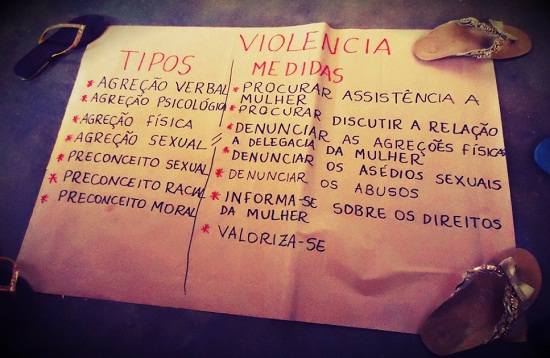 VIOLENCIA
TIPOS
* AGREÇÃO VERBAL
* AGREÇÃO PSICOLÓGIA
* AGREÇÃO FÍSICA
* AGREÇÃO SEXUAL
* PRECONCEITO SEXUAL
* PRECONCEITO RACIAL
* PRECONCEITO MORAL
MEDIDAS
* PROCURAR ASSISTÊNCIA A
MULHER
* PROCURAR DISCUTIR A RELAÇÃO
* DENUNCIAR AS AGREÇÕES FÍSICAS
A DELEGACIA DA MULHER
* DENUNCIAR OS ASÉDIOS SEXUAIS
* DENUNCIAR OS ABUSOS
* INFORMA-SE SOBRE OS DIREITOS
DA MULHER
* VALORIZA-SE